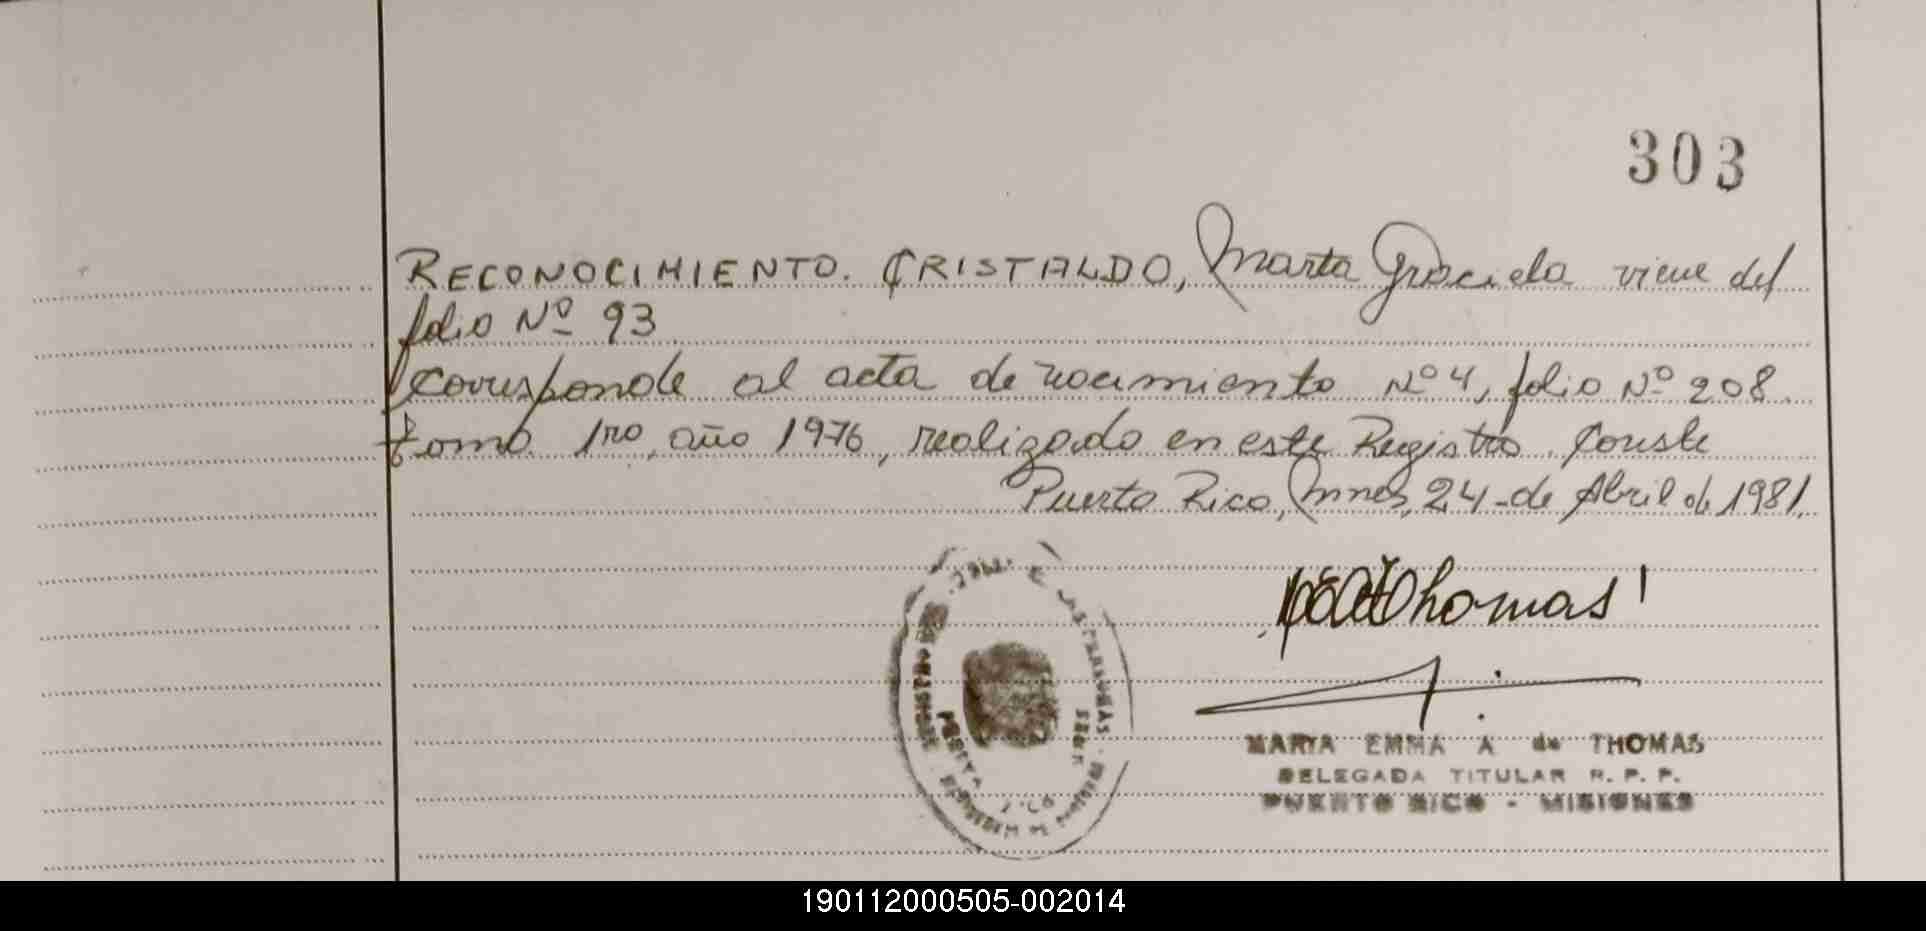 303
RECONOCIMIENTO. CRISTALDO, Marta Graciela viene del
folio Nº 93
Corresponde al acta de nacimiento Nº 4, folio Nº 208
tomo 1ro, año 1976, realizado en este Registro. Conste
Puerto Rico, Mnes, 24-de Abril de 1981.
Thomas
MARIA EMMA A de THOMAS
DELEGADA TITULAR R. P. P.
PUERTO RICO - MISIONES
190112000505-002014